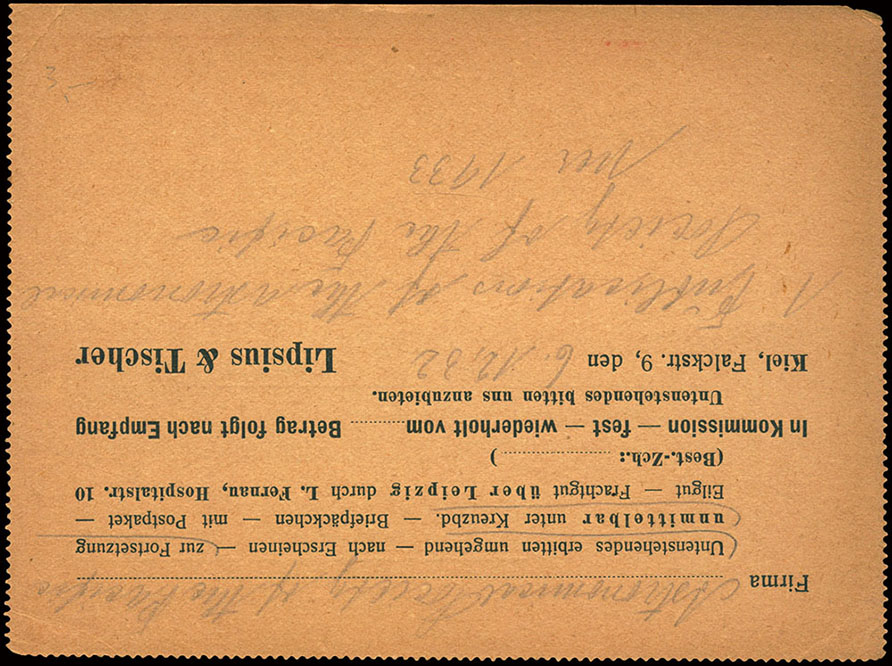 Firma Astronomical Society of the Pacific
Untenstehendes erbitten umgehend — nach Erscheinen — zur Fortsetzung
unmittelbar unter Kreuzbd. — Briefpäckchen — mit Postpaket —
Eilgut — Frachtgut über Leipzig durch L. Fernau, Hospitalstr. 10
(Best.-Zch.: ............)
In Kommission — fest — wiederholt vom ............ Betrag folgt nach Empfang
Untenstehendes bitten uns anzubieten.
Kiel, Falckstr. 9, den 6.12.32 Lipsius & Tischer
1 Publications of the Astronomical
Society of the Pacific
1933
3,—